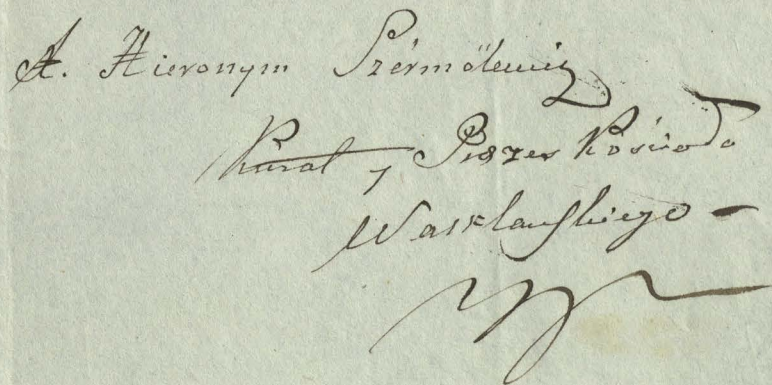 X. Hieronym Szérmólewicz
Kurat y Proszcz Kościoła
Wasklauskiego –